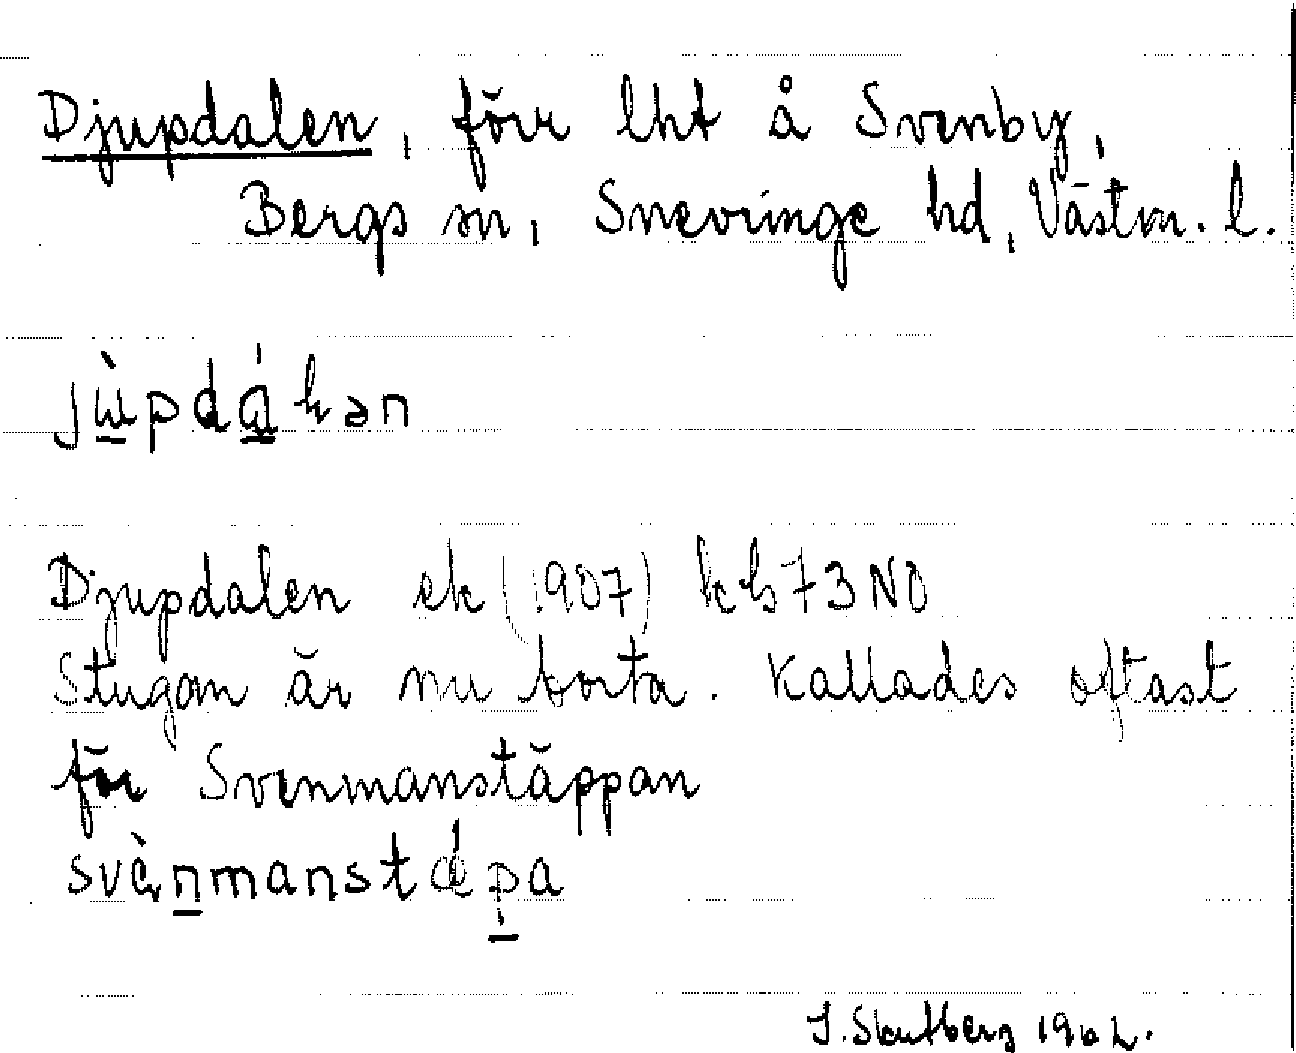 Djupdalen, förr lht å Svenby,
Bergs sn, Snevringe hd, Västm. l.
jùpdáɫən
Djupdalen ek (1907) kb 73 NO
Stugan är nu borta. Kallades oftast
för Svenmanstäppan
svὲnmanstǽpa
1962.